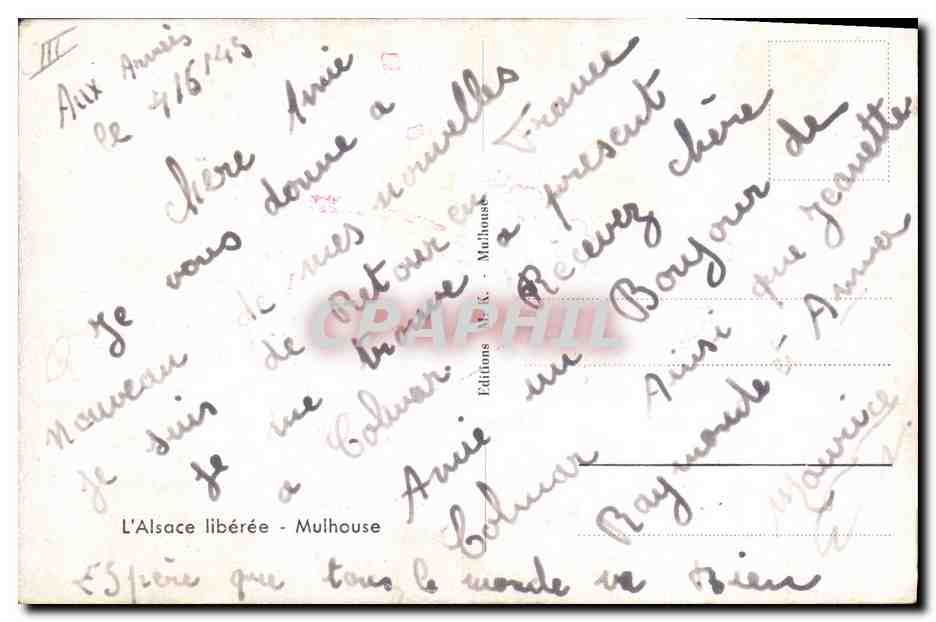 III
Aux Armées
le 4/6/45
Chère Amie
Je vous donne a
nouveau de mes nouvelles
Je suis de Retour en France
Je me trouve a present
a Colmar. Recevez chère
Amie un Bonjour de
Colmar Ainsi que Jeanette
Raymonde & Anna
Maurice
Espère que tous le monde va Bien
L'Alsace libérée - Mulhouse
Editions M. K. - Mulhouse
CPAPHIL